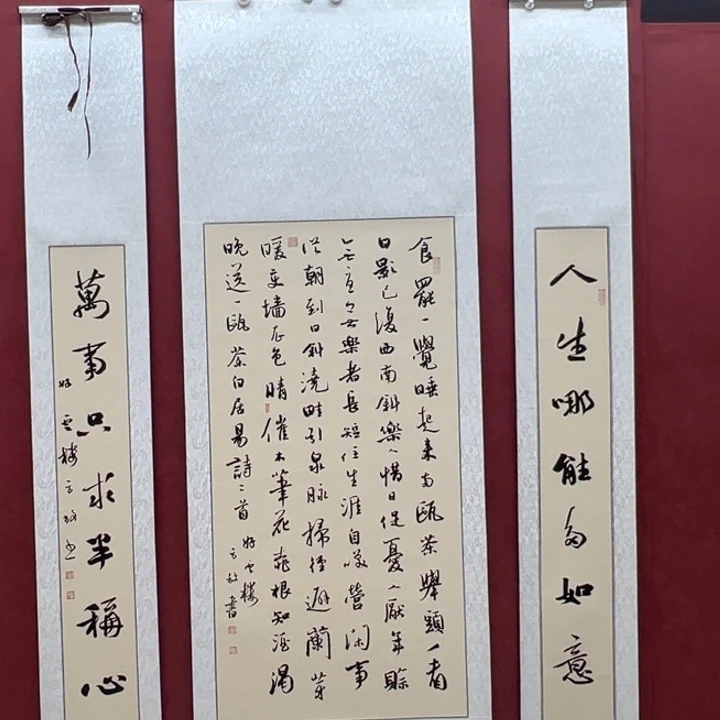 人生哪能多如意
食罷一覺睡起來兩甌茶舉頭看
日影已復西南斜樂人惜日促憂人厭年賒
無憂無樂者長短任生涯自咲營閑事
從朝到日斜澆畦引泉脈掃徑避蘭芽
暖變墻衣色晴催木筆花桃根知酒渴
晚送一甌茶白居易詩二首 好雲樓
書
萬事只求半稱心
好雲樓